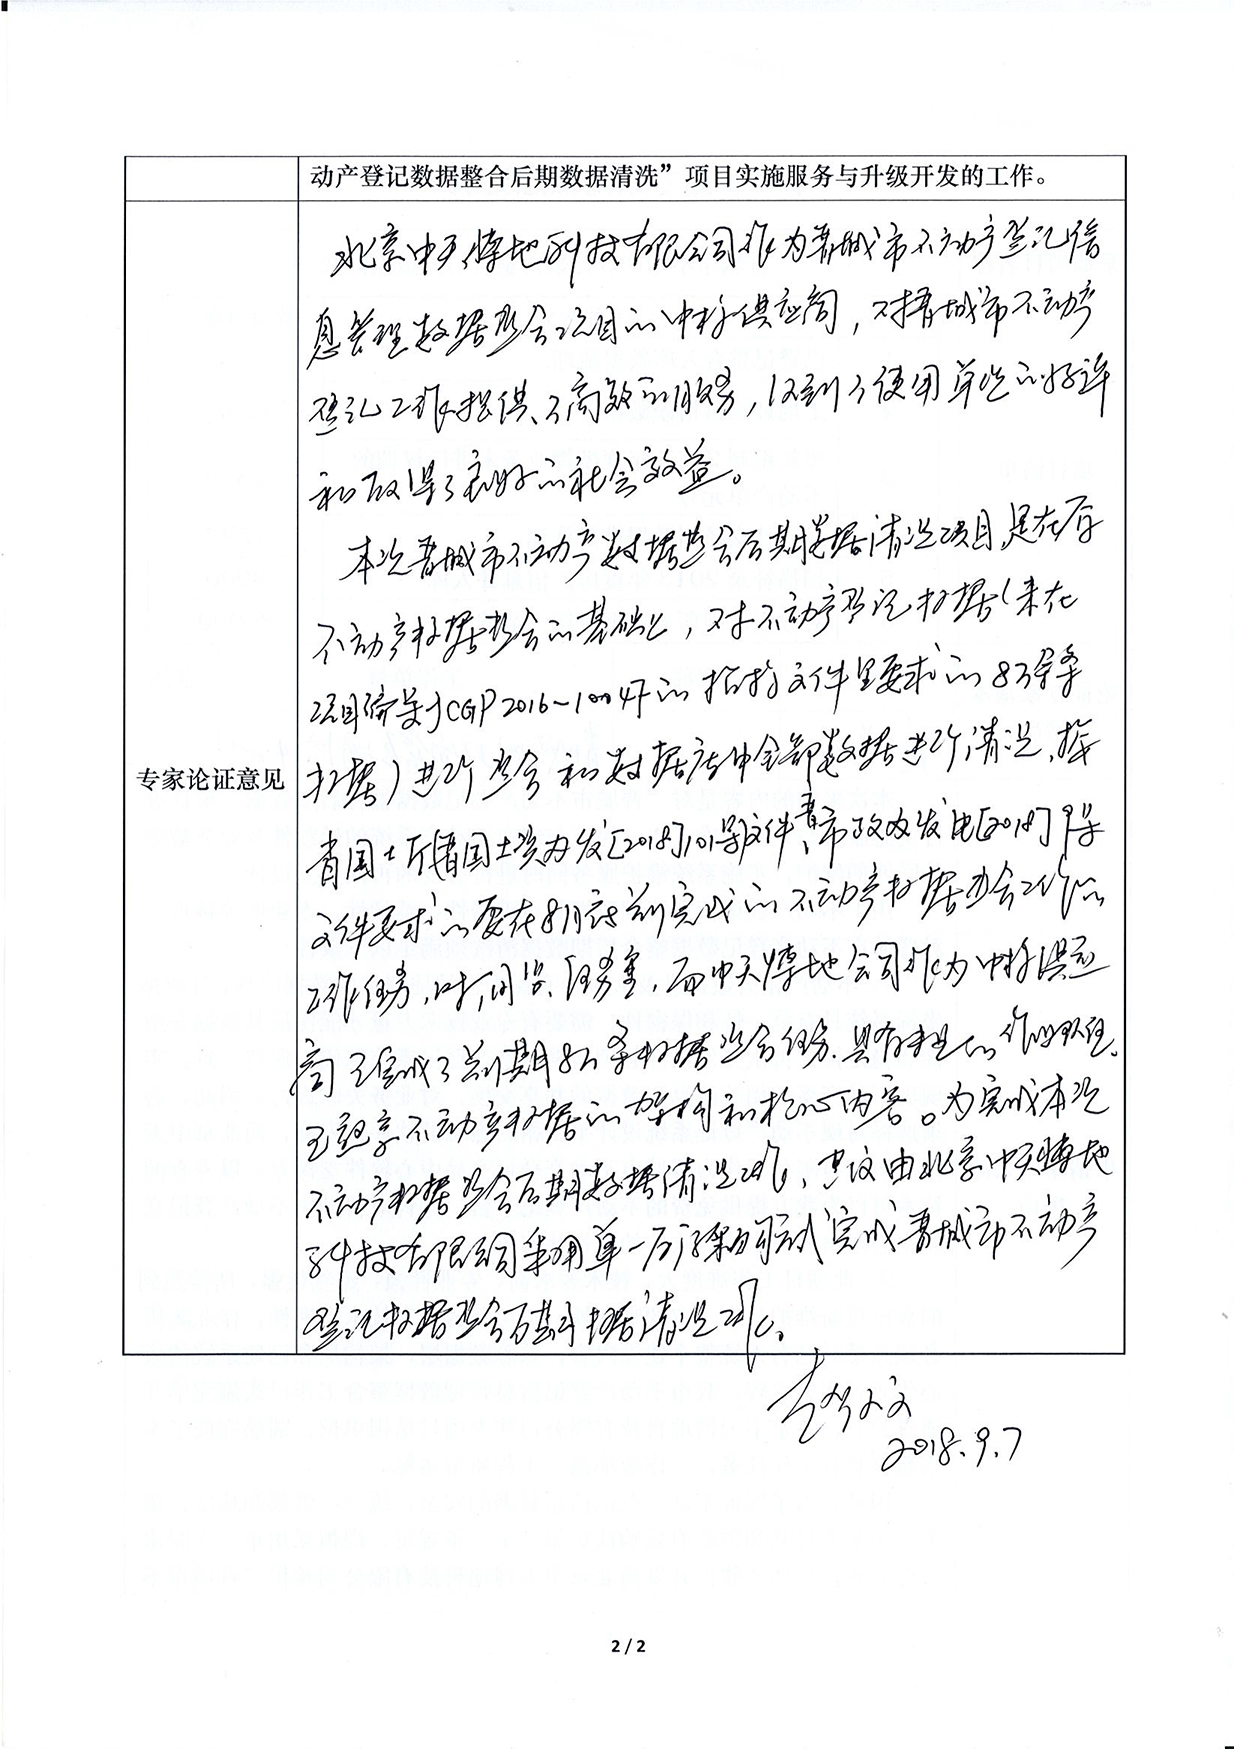 动产登记数据整合后期数据清洗”项目实施服务与升级开发的工作。
专家论证意见
北京中天博地科技有限公司作为晋城市不动产登记信
息管理数据整合项目的中标供应商，对晋城市不动产
登记工作提供了高效的服务，得到了使用单位的好评
和取得了良好的社会效益。
本次晋城市不动产数据整合后期数据清洗项目，是在原
不动产数据整合的基础上，对不动产登记数据（来在
项目编号JCGP2016-1004的招标文件里要求的8万余条
数据）进行整合和数据库中全部数据进行清洗，按
省国土厅晋国土资办发[2018]101号文件，晋市政办发电[2018]9号
文件要求的要在8月底前完成的不动产数据整合工作的
工作任务，时间紧、任务重，而中天博地公司作为中标供应
商已完成了前期8万条数据整合任务，具有的作业队伍，
已熟悉不动产数据的架构和核心内容。为完成本次
不动产数据整合后期数据清洗工作，建议由北京中天博地
科技有限公司采用单一来源采购方式完成晋城市不动产
登记数据整合后期数据清洗工作。
2018.9.7
2 / 2